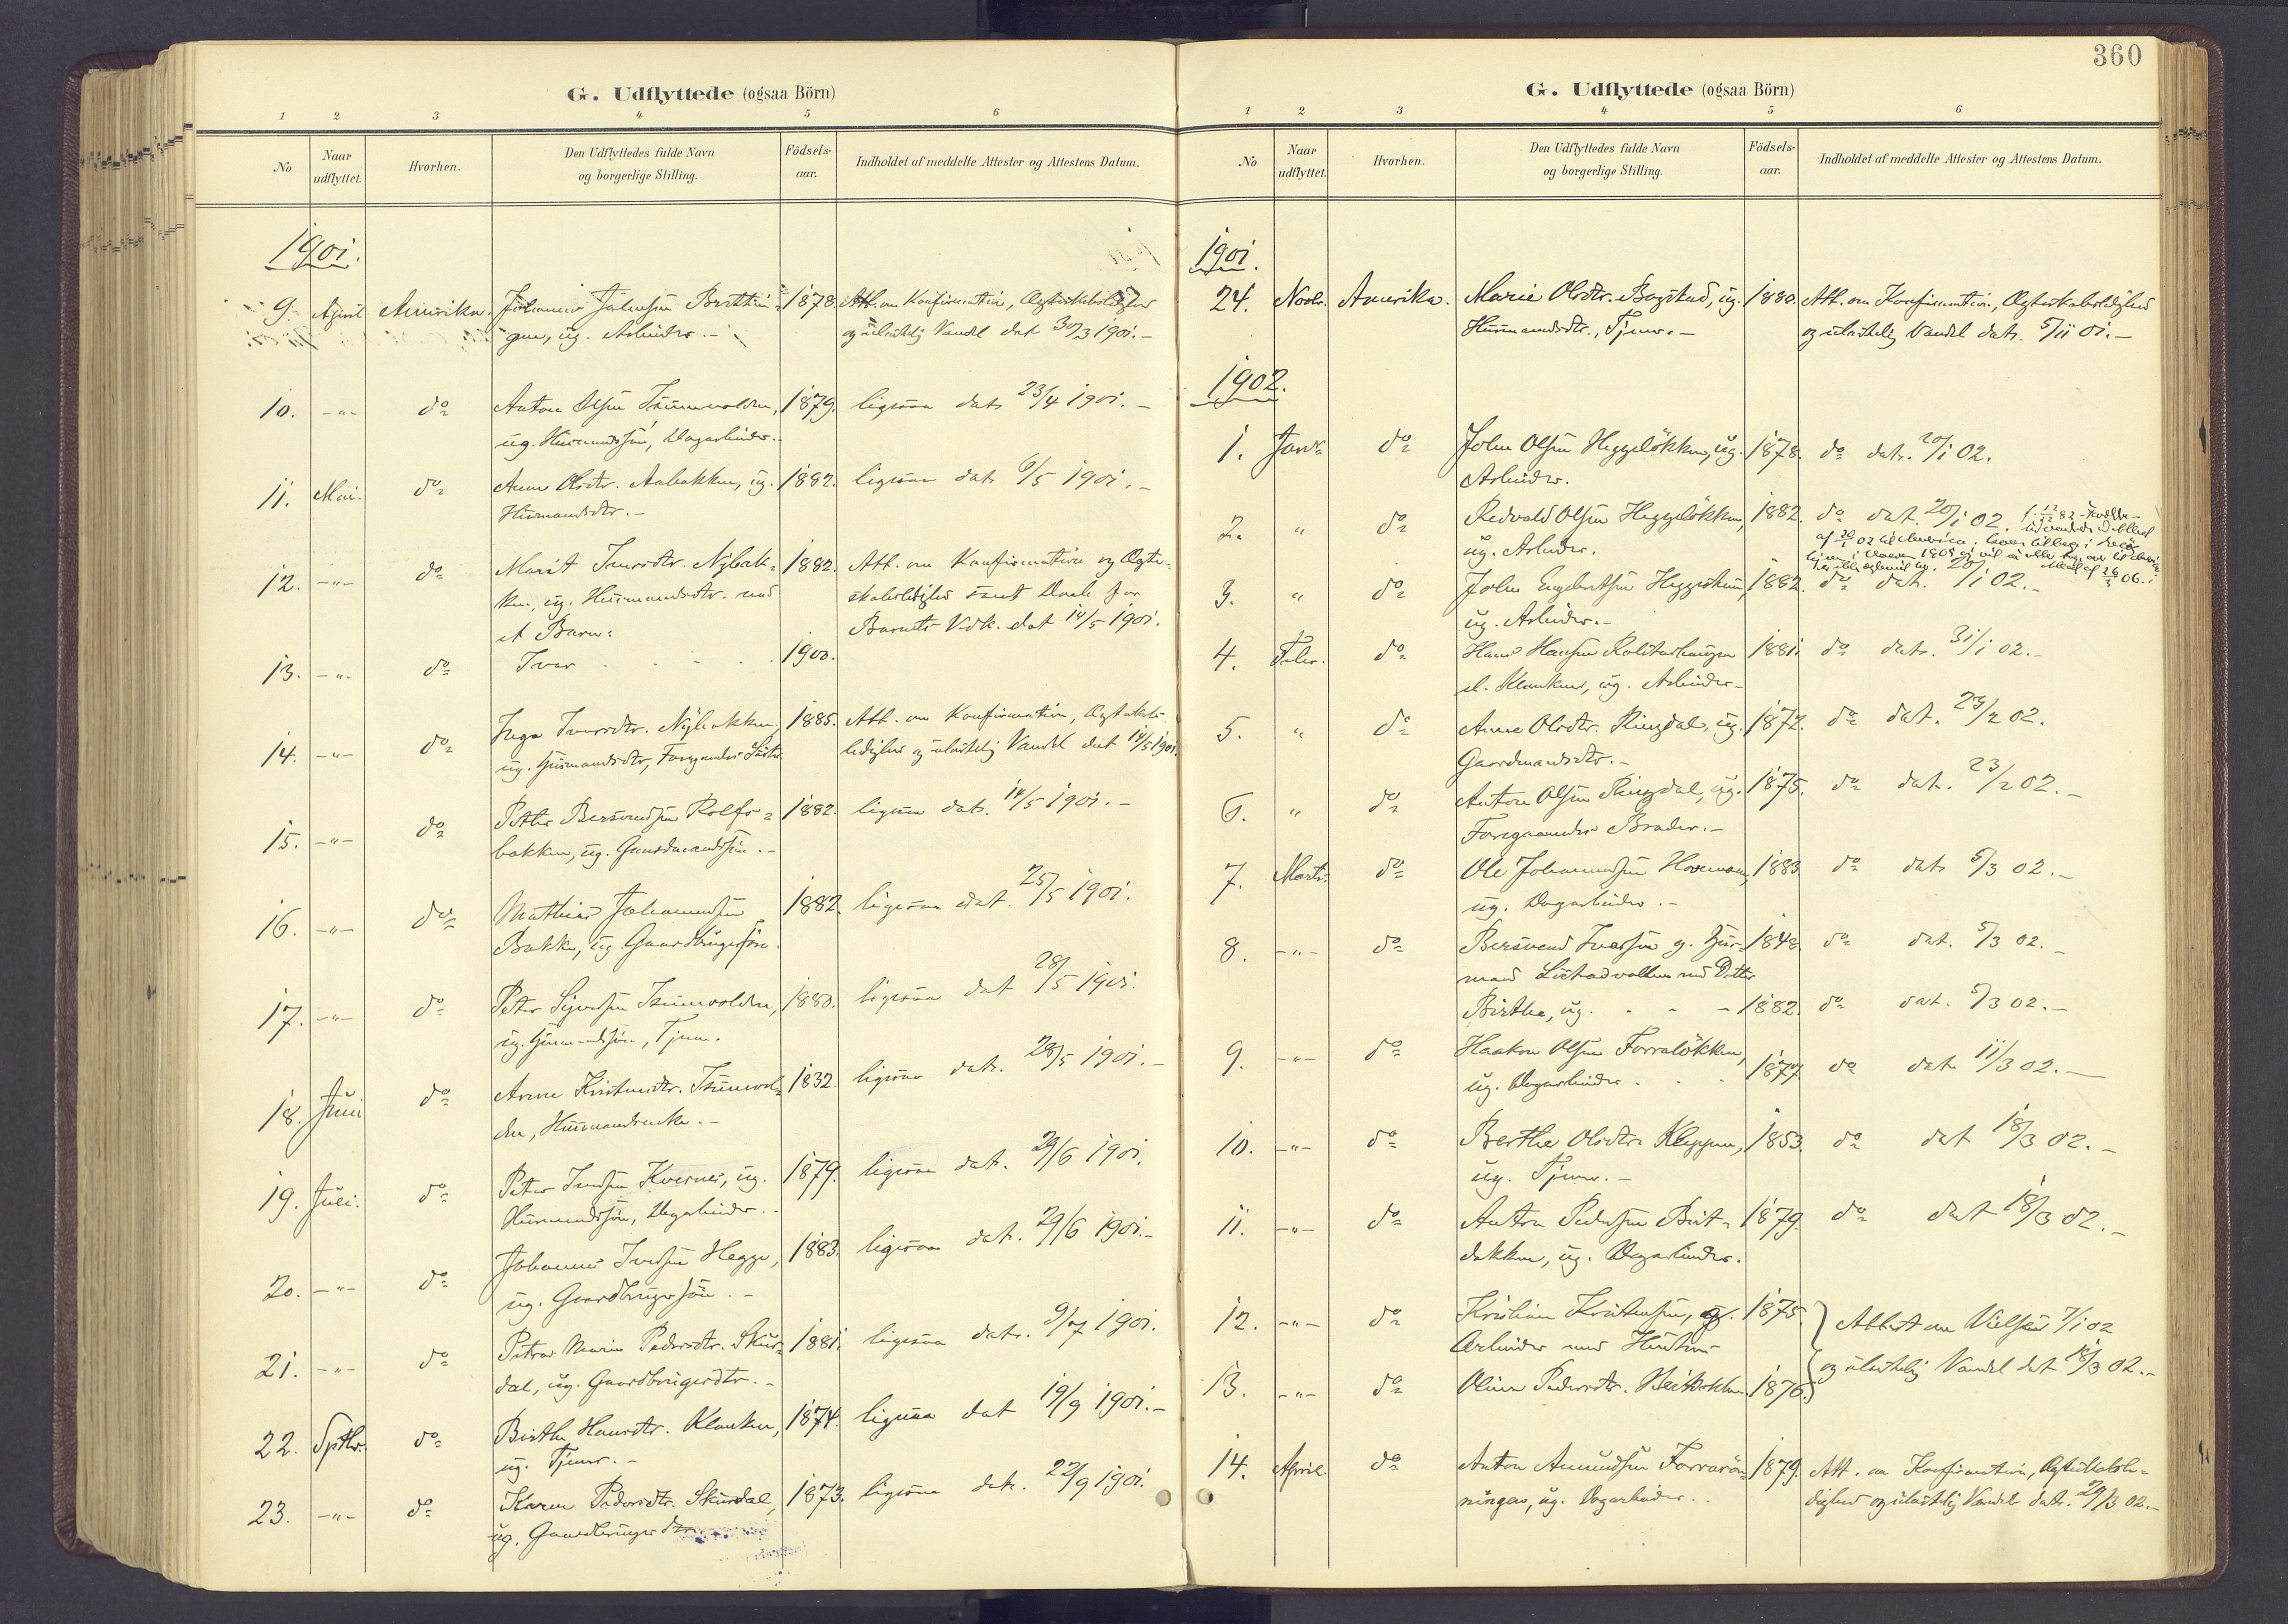 G. Udflyttede (ogsaa Börn)
1 2 3 4 5 6
No
Naar udflyttet.
Hvorhen.
Den Udflyttedes fulde Navn
og borgerlige Stilling.
Födsels-
aar.
Indholdet af meddelte Attester og Attestens Datum.
1901.
9. April Amerika. Johannes Johnsen 1878. Att. om Konfirmation, Ægteskabsledighed
ug. Arbeider. og ulastelig Vandel dat 30/3 1901.
10. -"- do Anton Olsen 1879. ligesaa dat. 23/4 1901.
ug. Husmandssøn, Dagarbeider.
11. Mai. do Anne Olsdtr. Aabakken, ug. 1882. ligesaa dat. 6/5 1901.
Husmandsdtr.
12. -"- do Marit Iversdtr. Nybak- 1882. Att. om Konfirmation og Ægte-
ken, ug. Husmandsdtr. med skabsledighed samt Daab for
et Barn: Barnets Vdk. dat 14/5 1901.
13. -"- do Iver 1900.
14. -"- do Inga Iversdtr. Nybakken, 1885. Att. om Konfirmation, Ægteskabs-
ug. Husmandsdtr, Foregaaendes Søster. ledighed og ulastelig Vandel dat 14/5 1901.
15. -"- do Peter Bersvendsen Rolfs- 1882. ligesaa dat. 14/5 1901.
bakken, ug. Gaardmandssøn.
16. -"- do Mathias Johannessen 1882. ligesaa dat. 25/5 1901.
Bakke, ug. Gaardbrugersøn.
17. -"- do Peter Sivertsen 1880. ligesaa dat 28/5 1901.
ug. Husmandssøn, Tjener.
18. Juni do Anne 1832. ligesaa dat. 28/5 1901.
den, Husmandsenke.
19. Juli. do Peter Iversen Kvernes, ug. 1879. ligesaa dat. 29/6 1901.
Husmandssøn, Dagarbeider.
20. -"- do Johannes Iversen Hegge, 1883. ligesaa dat. 29/6 1901.
ug. Gaardbrugersøn.
21. -"- do Petra Marie Pedersdtr. Skur- 1881. ligesaa dat. 9/7 1901.
dal, ug. Gaardbrugerdtr.
22. Septbr. do Birthe Hansdtr. Klanken, 1874. ligesaa dat 19/9 1901.
ug. Tjener.
23. -"- do Karen Pedersdtr. Skurdal, 1873. ligesaa dat. 22/9 1901.
ug. Gaardbrugerdtr
360
G. Udflyttede (ogsaa Börn)
1 2 3 4 5 6
No
Naar udflyttet.
Hvorhen.
Den Udflyttedes fulde Navn
og borgerlige Stilling.
Födsels-
aar.
Indholdet af meddelte Attester og Attestens Datum.
1901.
24. Novbr. Amerika. Marie Olsdtr. Bagstad, ug. 1880. Att. om Konfirmation, Ægteskabsledighed
Husmandsdtr., Tjener. og ulastelig Vandel dat. 5/11 01.
1902.
1. Janr. do John Olsen Heggeløkken, ug. 1878. do dat. 20/1 02.
Arbeider.
2. " do Redvald Olsen Heggeløkken, 1882. do dat. 20/1 02.
ug. Arbeider.
3. " do John Engebretsen 1882. do dat. 20/1 02.
ug. Arbeider.
4. Febr. do Hans Hansen 1881. do dat. 31/1 02.
el. Klanken, ug. Arbeider.
5. " do Anne Olsdtr. Ringdal, ug. 1872. do dat. 23/2 02.
Gaardmandsdtr.
6. " do Anton Olsen Ringdal, ug. 1875. do dat. 23/2 02.
Foregaaendes Broder.
7. Marts. do Ole Johannessen 1883. do dat. 5/3 02.
ug. Dagarbeider.
8. -"- do Bersvend Iversen g. Hus- 1848. do dat. 5/3 02.
mand med Datter
Birthe, ug. 1882. do dat. 5/3 02.
9. -"- do Haakon Olsen Forraløkken, 1877. do dat. 11/3 02.
ug. Dagarbeider.
10. -"- do Berthe Olsdtr. Kleppen, 1853. do dat 18/3 02.
ug. Tjener.
11. -"- do Anton Pedersen 1879. do dat 18/3 02.
ug. Dagarbeider.
12. -"- do Kristian Kristensen, g. 1875. Attest om Vielsen 7/1 02
Arbeider med Hustru
13. -"- do Oline Pedersdtr. 1876. og ulastelig Vandel dat 18/3 02.
14. April. do Anton Amundsen 1879. Att. om Konfirmation, Ægteskabsle-
ug. Dagarbeider. dighed og ulastelig Vandel dat. 29/3 02.